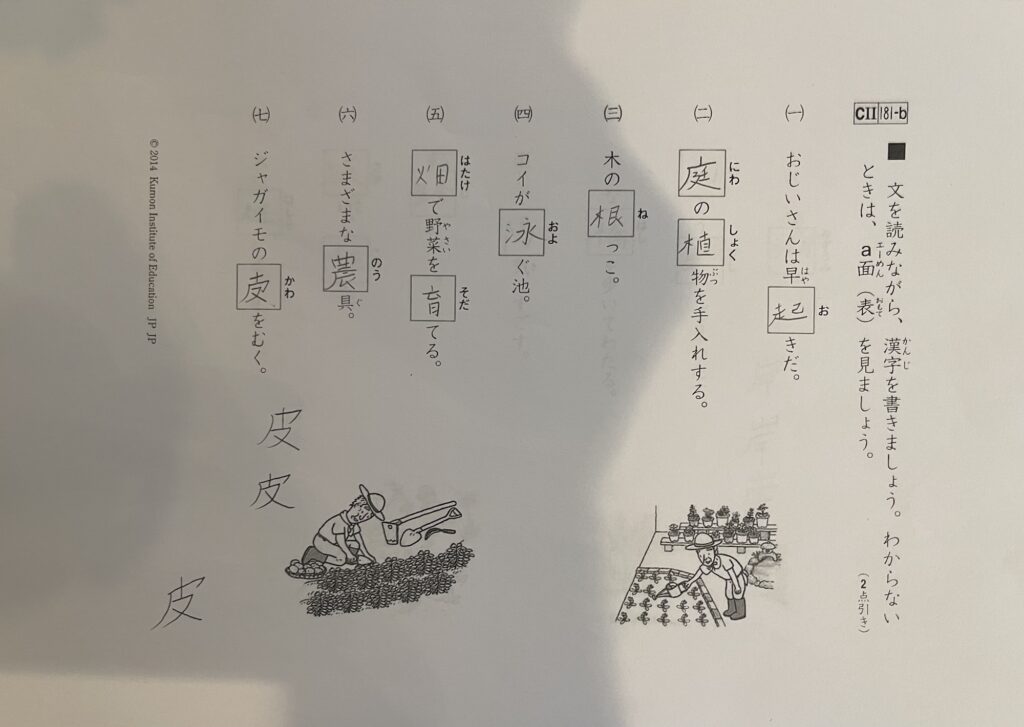 CII 181-b
■ 文を読みながら、漢字を書きましょう。わからない
ときは、a面（表）を見ましょう。
かんじ
エーめん
おもて
（2点引き）
㈠ おじいさんは早起きだ。
はや
お
㈡ 庭の植物を手入れする。
にわ
しょく
ぶつ
㈢ 木の根っこ。
ね
㈣ コイが泳ぐ池。
およ
㈤ 畑で野菜を育てる。
はたけ
やさい
そだ
㈥ さまざまな農具。
のう
ぐ
㈦ ジャガイモの皮をむく。
かわ
皮
皮
皮
© 2014 Kumon Institute of Education JP JP